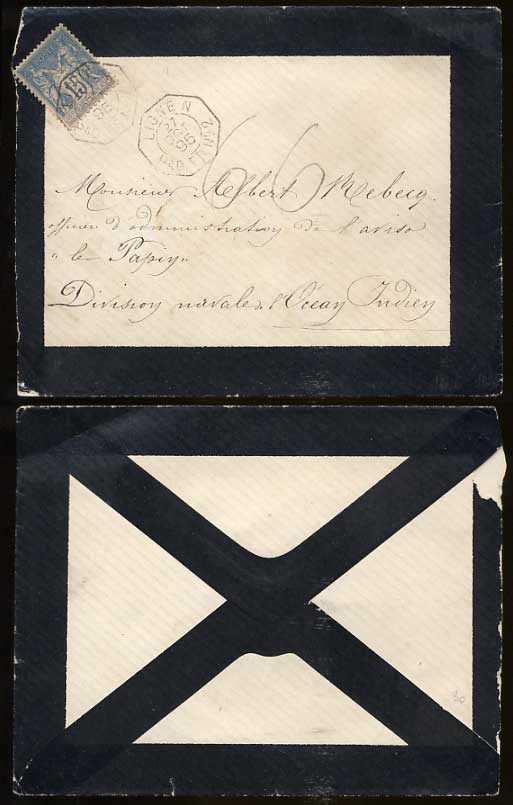 15
LIGNE N
PAQ. FR. N°2
Monsieur Albert Rebecq.
officier d'administration de l'aviso
"le Papin"
Division navale de l'Océan Indien